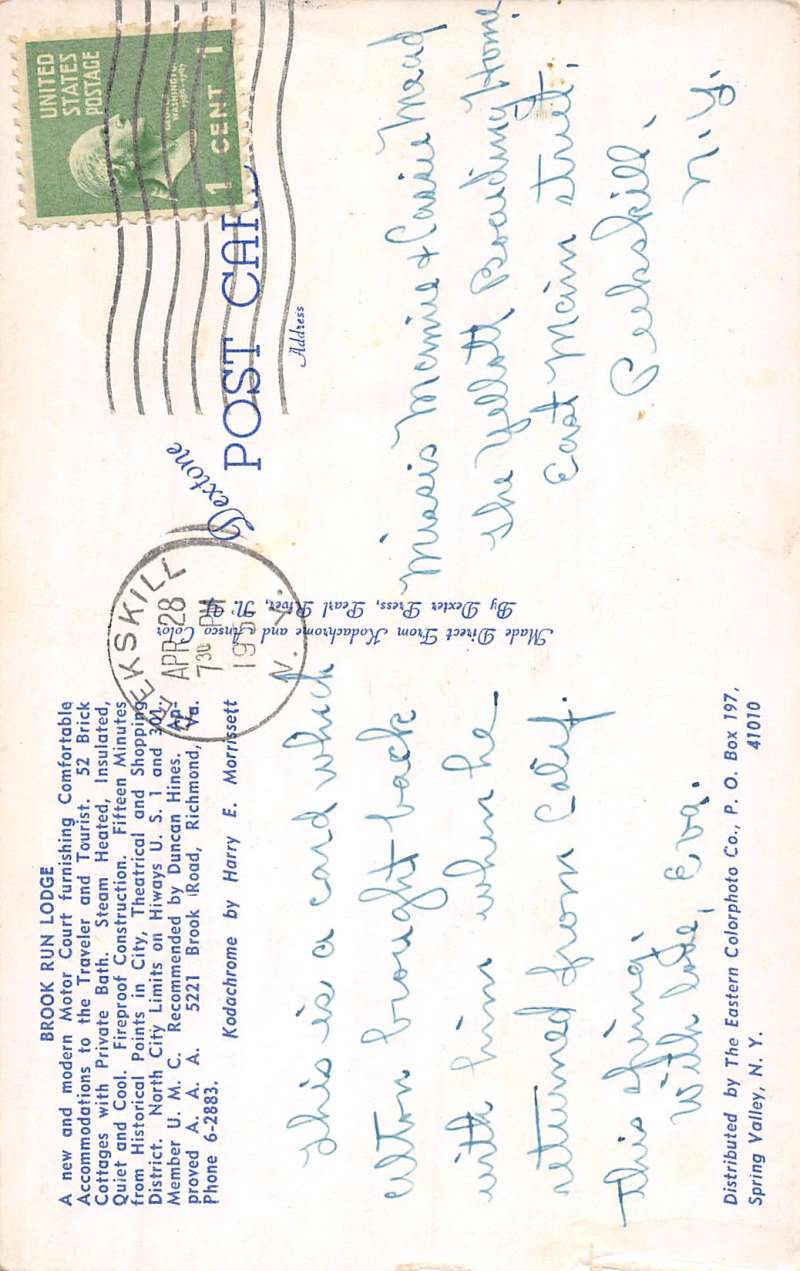 BROOK RUN LODGE
A new and modern Motor Court furnishing Comfortable
Accommodations to the Traveler and Tourist. 52 Brick
Cottages with Private Bath. Steam Heated, Insulated,
Quiet and Cool. Fireproof Construction. Fifteen Minutes
from Historical Points in City, Theatrical and Shopping
District. North City Limits on Hiways U. S. 1 and 301.
Member U. M. C. Recommended by Duncan Hines. Ap-
proved A. A. A. 5221 Brook Road, Richmond, Va.
Phone 6-2883.
Kodachrome by Harry E. Morrissett
This is a card which
Elton brought back
with him when he
returned from Calif.
this spring.
With love, Eva.
Distributed by The Eastern Colorphoto Co., P. O. Box 197,
Spring Valley, N. Y.
41010
Made Direct From Kodachrome and Ansco Color
By Dexter Press, Pearl River, N. Y.
PEEKSKILL
APR 28
7 30 PM
N. Y.
UNITED
STATES
POSTAGE
GEORGE
WASHINGTON
1 CENT 1
Dextone
POST CARD
Address
Missis Mamie + Carrie Mead
The Yellott Boarding Home
East Main street,
Peekskill,
N.Y.